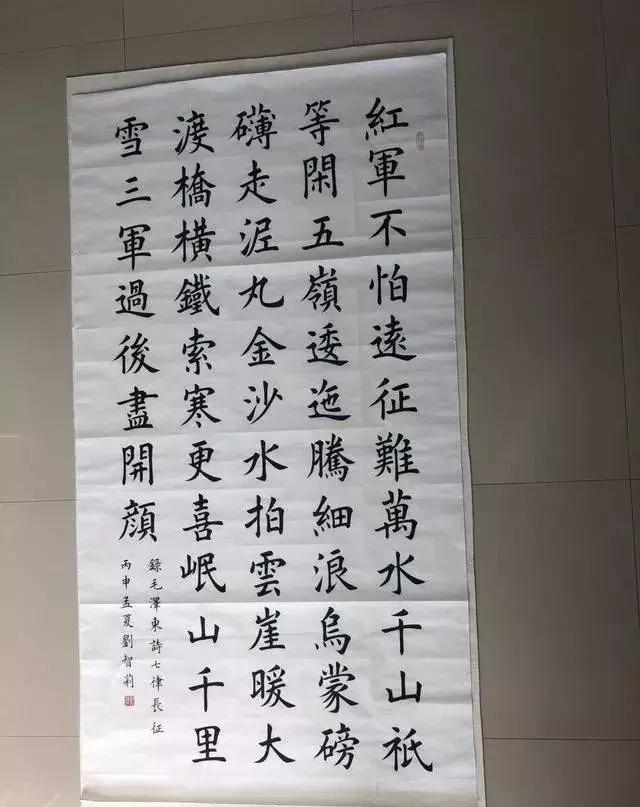 紅軍不怕遠征難萬水千山祇
等閑五嶺逶迤騰細浪烏蒙磅
礴走泥丸金沙水拍雲崖暖大
渡橋橫鐵索寒更喜岷山千里
雪三軍過後盡開顏
錄毛澤東詩七律長征
丙申孟夏劉智莉